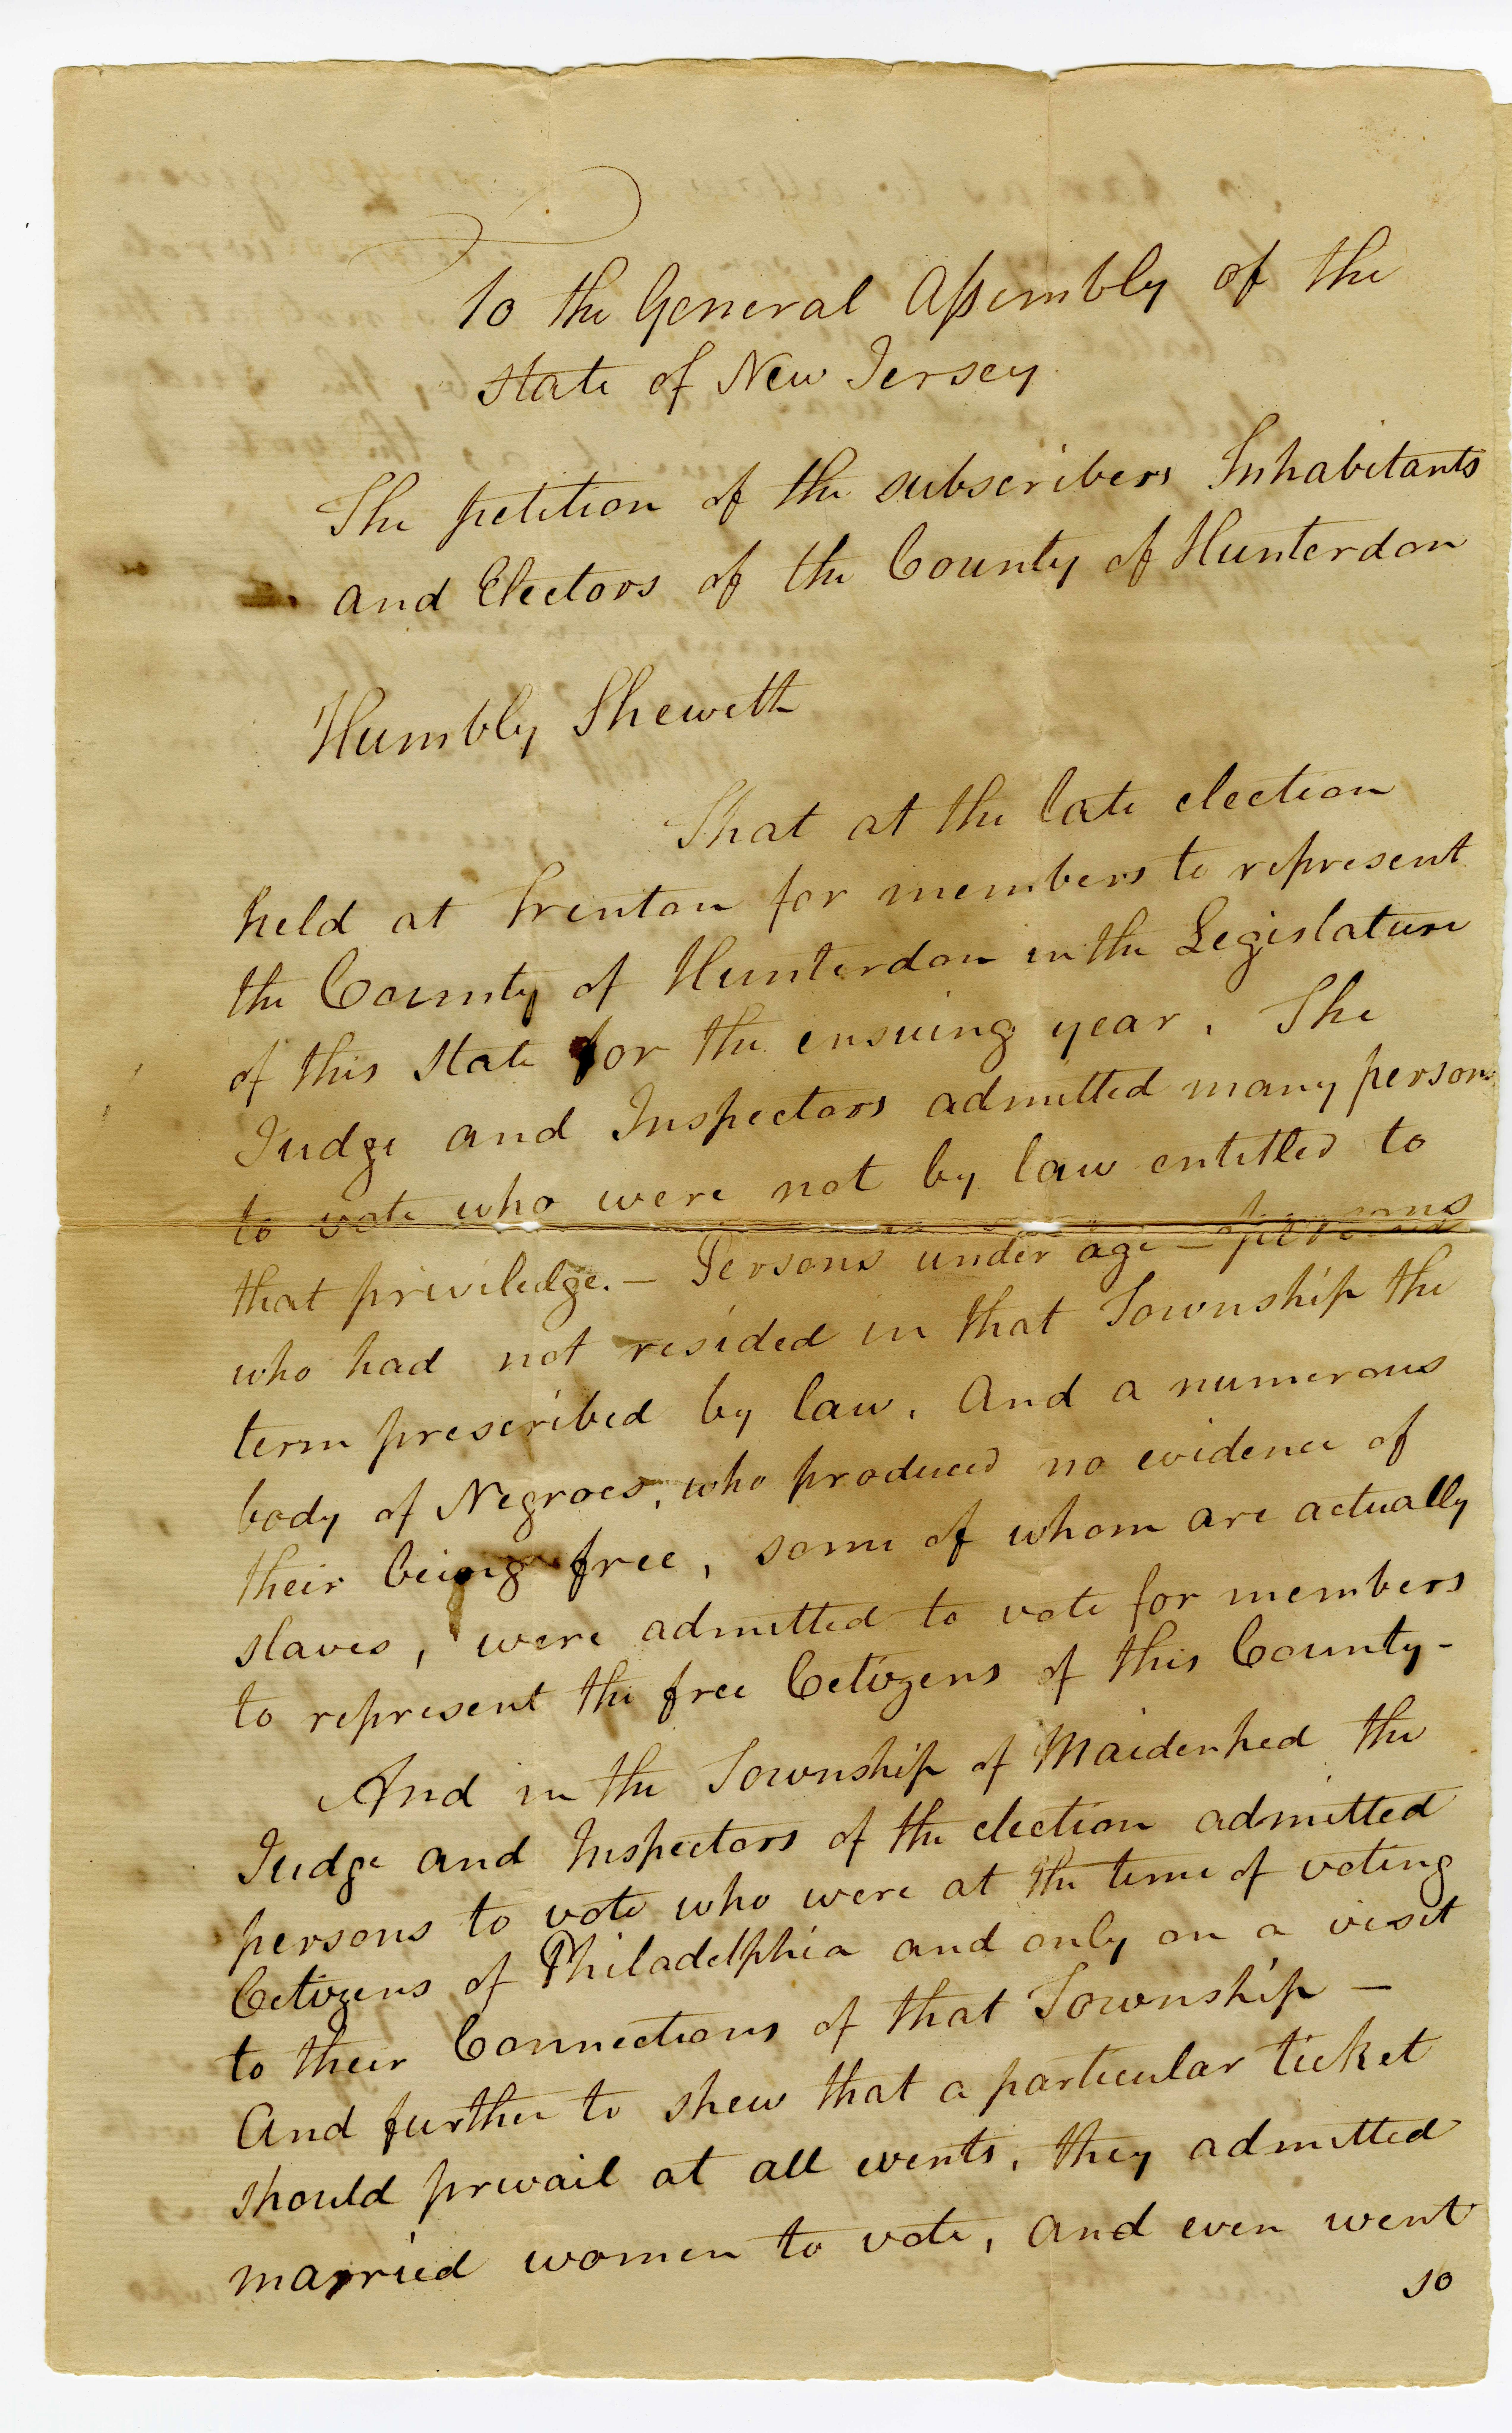 To the General Assembly of the
State of New Jersey
The petition of the subscribers Inhabitants
and Electors of the County of Hunterdon
Humbly Sheweth
That at the late election
held at Trenton for members to represent
the County of Hunterdon in the Legislature
of this State for the ensuing year. The
Judge and Inspectors admitted many persons
to vote who were not by law entitled to
that priviledge. — Persons under age — persons
who had not resided in that Township the
term prescribed by law. And a numerous
body of Negroes, who produced no evidence of
their being free, some of whom are actually
slaves, were admitted to vote for members
to represent the free Citizens of this County -
And in the Township of Maidenhed the
Judge and Inspectors of the election admitted
persons to vote who were at the time of voting
Citizens of Philadelphia and only on a visit
to their Connections of that Township —
And further to shew that a particular ticket
should prevail at all events, they admitted
married women to vote, and even went
so